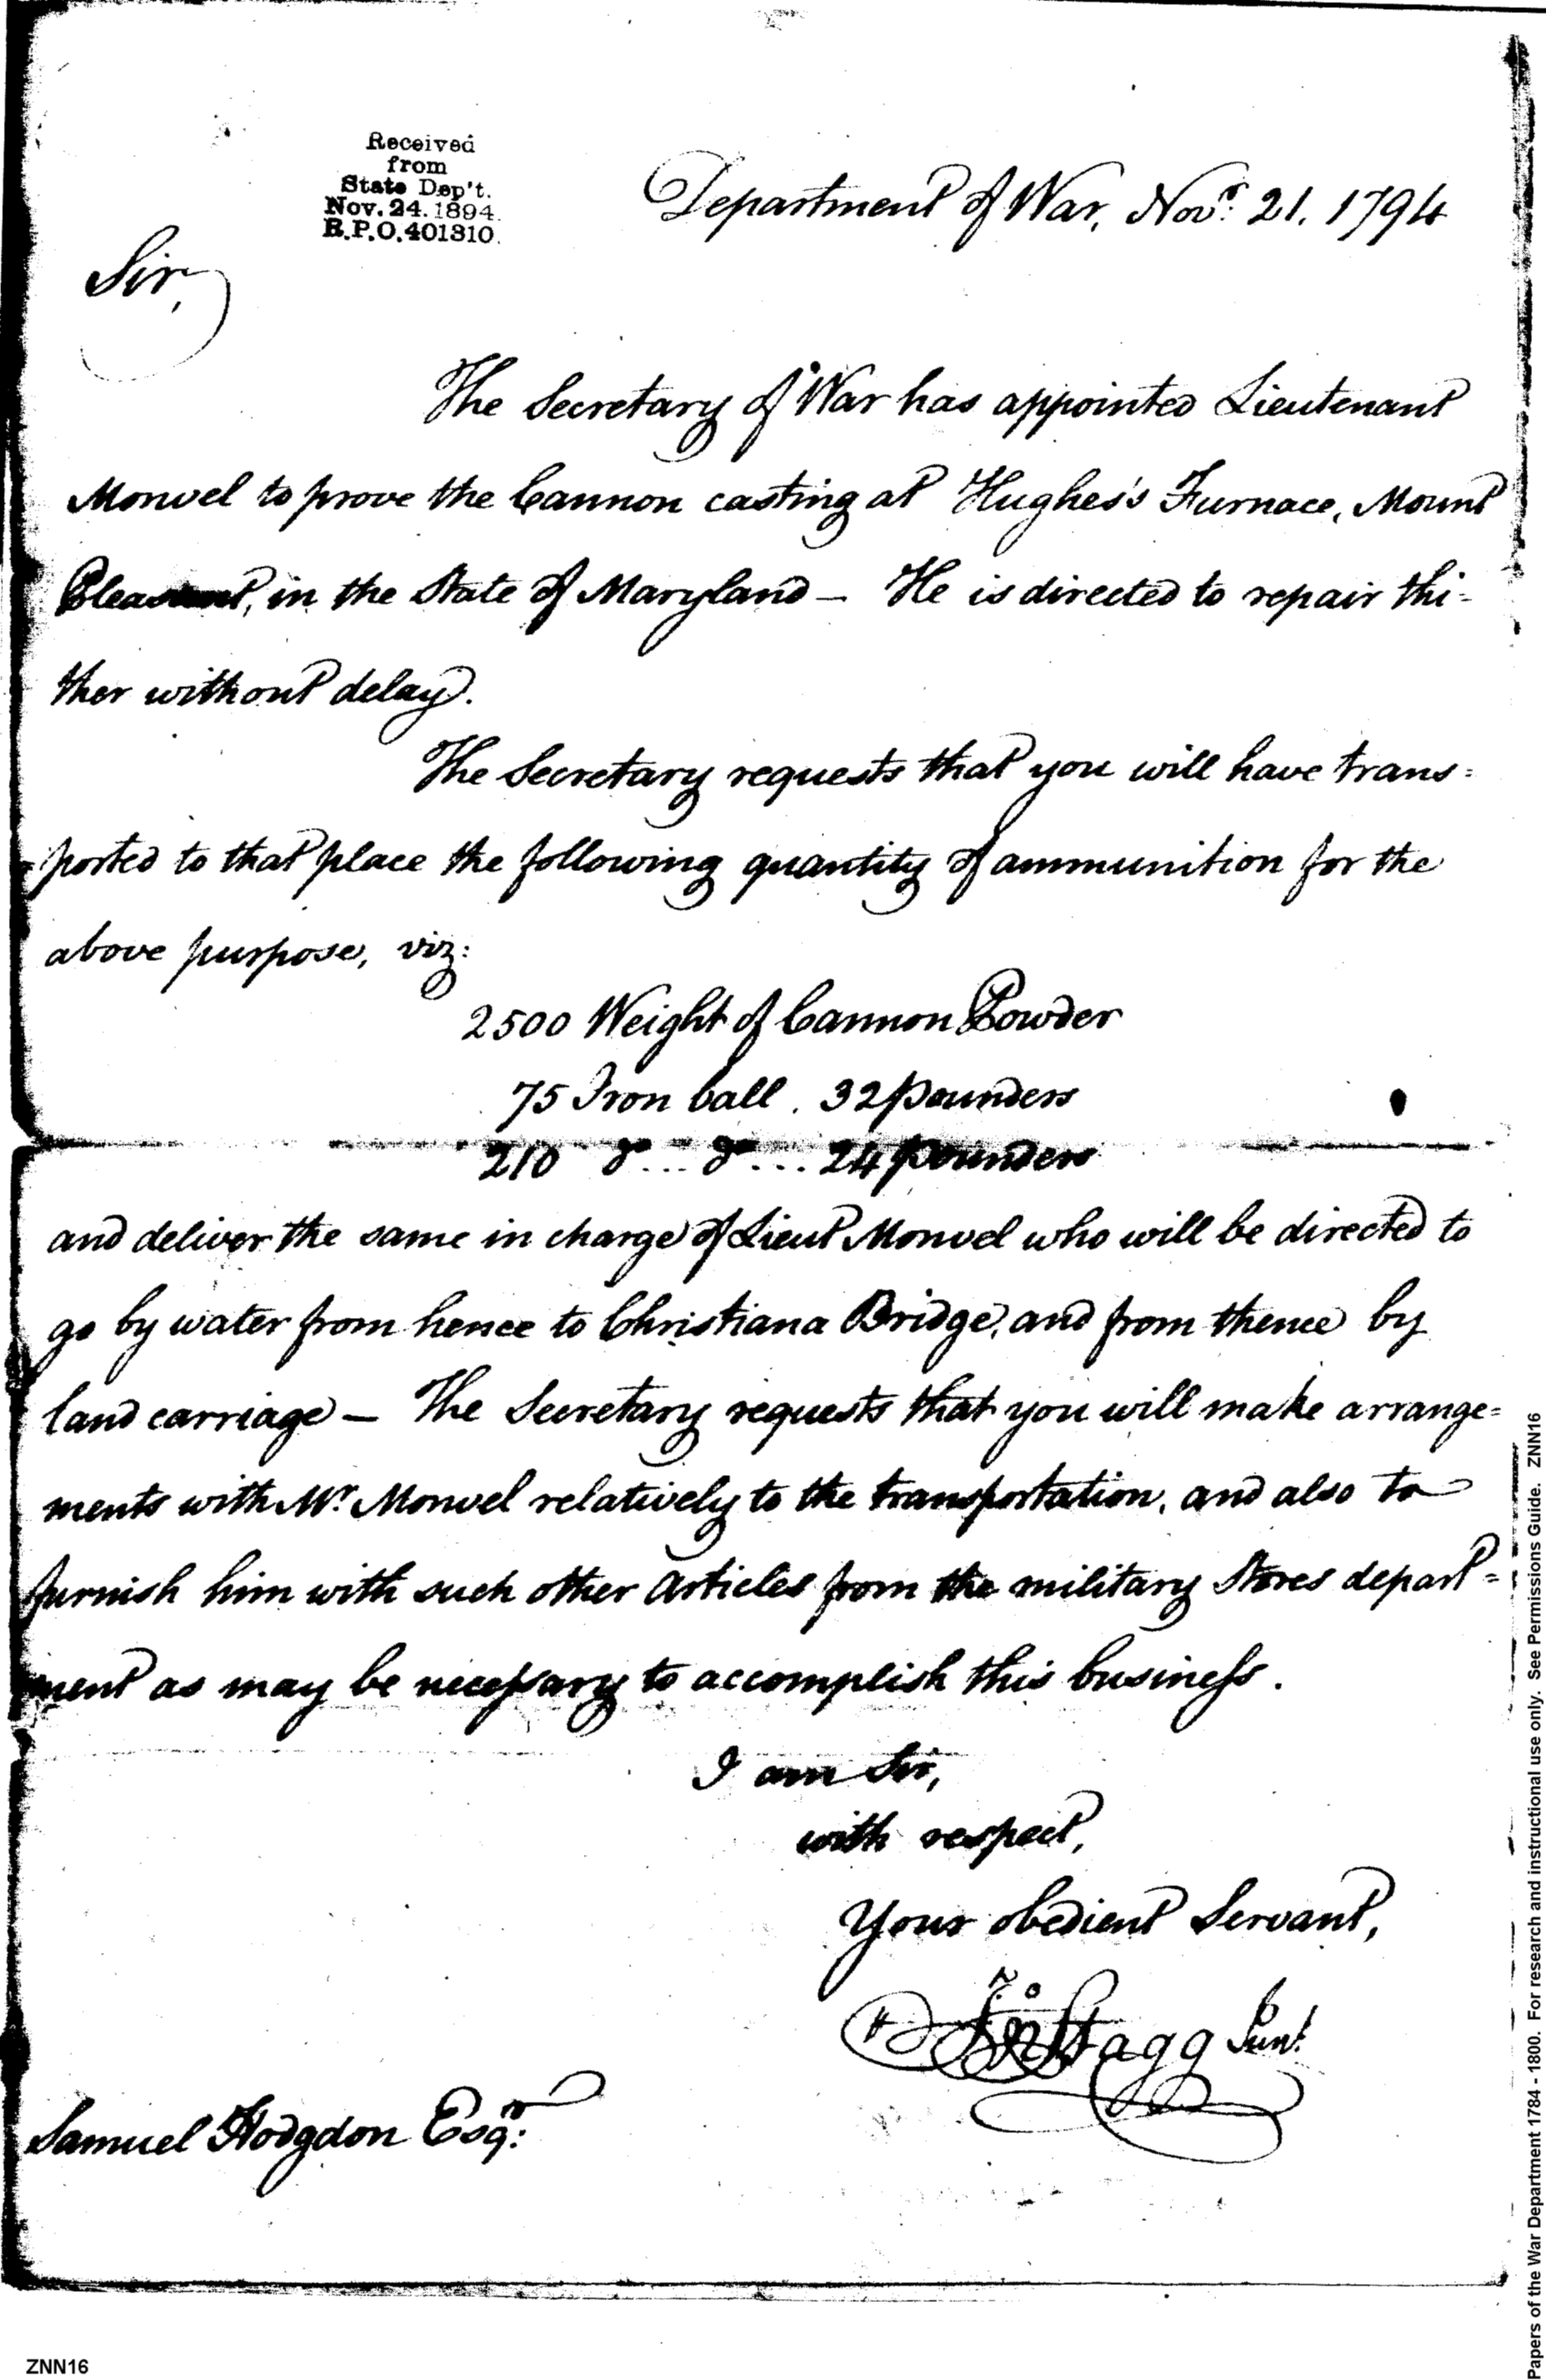 Received
from
State Dep't.
Nov. 24. 1894.
R.P.O. 401310.
Department of War, Novr. 21. 1794
Sir,
The Secretary of War has appointed Lieutenant
Monvel to prove the Cannon casting at Hughes's Furnace, Mount
Pleasant, in the State of Maryland — He is directed to repair thi=
ther without delay.
The Secretary requests that you will have trans=
ported to that place the following quantity of ammunition for the
above purpose, viz:
2500 Weight of Cannon Powder
75 Iron ball . 32 pounders
210 do... do... 24 pounders
and deliver the same in charge of Lieut Monvel who will be directed to
go by water from hence to Christiana Bridge, and from thence by
land carriage — The Secretary requests that you will make arrange=
ments with Mr. Monvel relatively to the transportation, and also to
furnish him with such other articles from the military Stores depart=
ment as may be necessary to accomplish this business.
I am Sir,
with respect,
Your obedient Servant,
Jno Stagg Junr.
Samuel Hodgdon Esqr.
ZNN16
Papers of the War Department 1784 - 1800. For research and instructional use only. See Permissions Guide. ZNN16